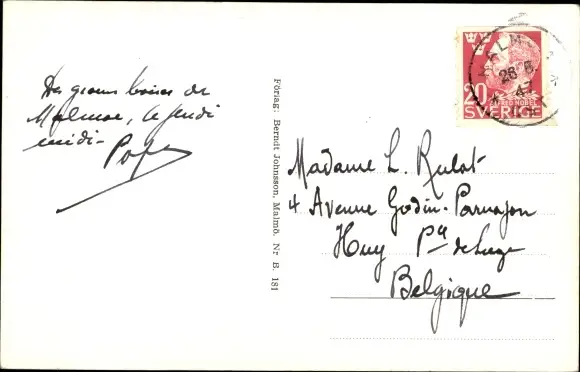 Des gros baisers de
Malmoe, ce jeudi
midi -
Förlag: Berndt Johnsson, Malmö. Nr B. 181
MALMÖ
26 6.
47
20
ALFRED NOBEL
SVERIGE
Madame L. Rulot
4 Avenue Godin-Parnajon
Huy Pce de Liege
Belgique